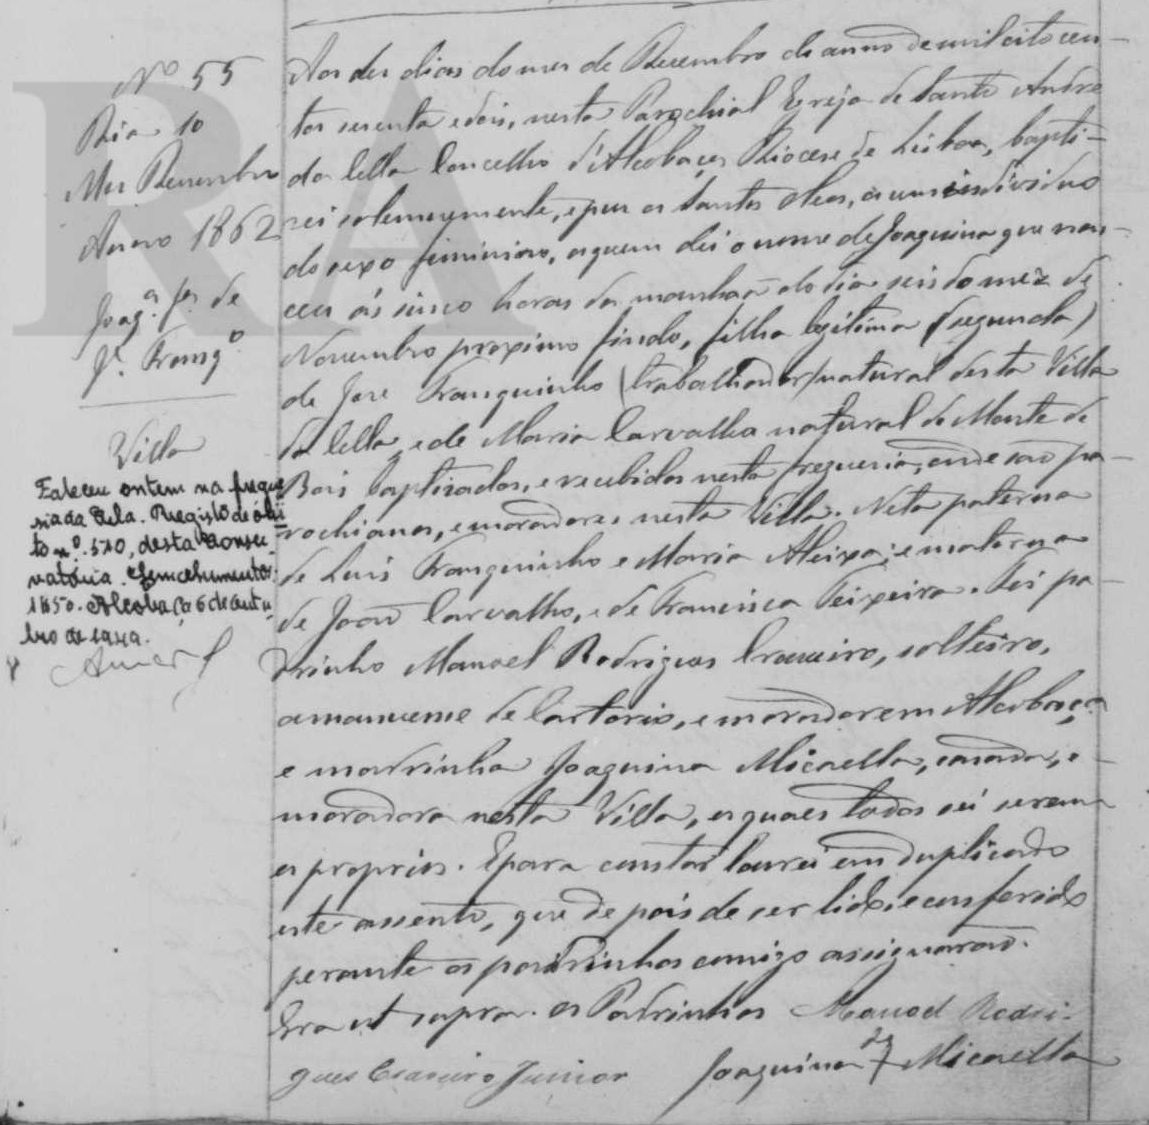 Nº 55
Dia 10
Mez Dezembro
Anno 1862
Joaqª fª de
Jº Franqº
Villa
Faleceu ontem na fregue
sia da Cela. Registo de óbi
to nº. 510, desta Conser
vatória. Emolumentos:
1$50. Alcobaça 6 de outu
bro de
Amaral
Aos des dias do mes de Dezembro do anno de mil oito cen-
tos secenta e dois, nesta Parochial Egreja de Santo Andre
da Cella Concelho d'Alcobaça, Diocese de Lisboa, bapti-
sei solemnemente, e puz os Santos Oleos, a um individuo
do sexo feminino, a quem dei o nome de Joaquina que nas-
ceu ás sinco horas da manhaã do dia seis do mez de
Novembro proximo findo, filha legitima (segunda)
de Jose Franquinho (trabalhador) natural desta Villa
da Cella, e de Maria Carvalha natural do Monte de
Bois baptizados, e recebidos nesta freguezia, onde saõ pa-
rochianos, e moradores nesta Villa. Neta paterna
de Luis Franquinho e Maria Aleixa; e materna
de Joaõ Carvalho, e de Francisca Teixeira. Foi pa-
drinho Manoel Rodrigues Craveiro, solteiro,
amanuense de Cartorio, e morador em Alcobaça
e madrinha Joaquina Micaella, casada, e
moradora nesta Villa, os quaes todos sei serem
os proprios. E para constar lavrei em duplicado
este assento, que depois de ser lido, e conferido
perante os padrinhos comigo assignaraõ.
Era ut supra. Os Padrinhos Manoel Rodri-
gues Craveiro Junior Joaquina da † Micaella
RA